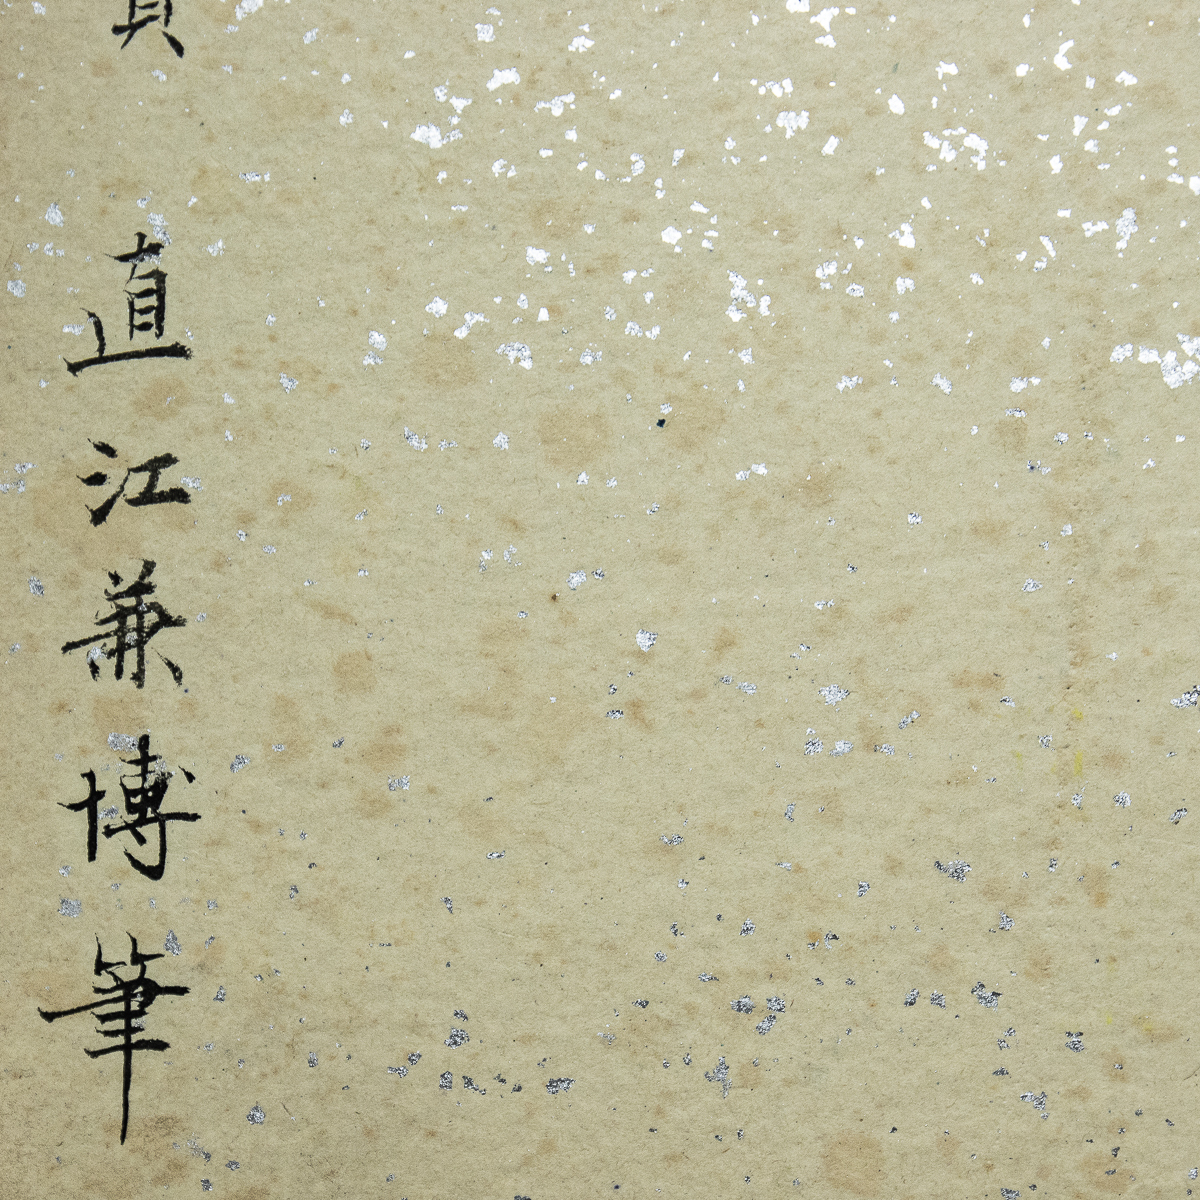 直江兼博筆